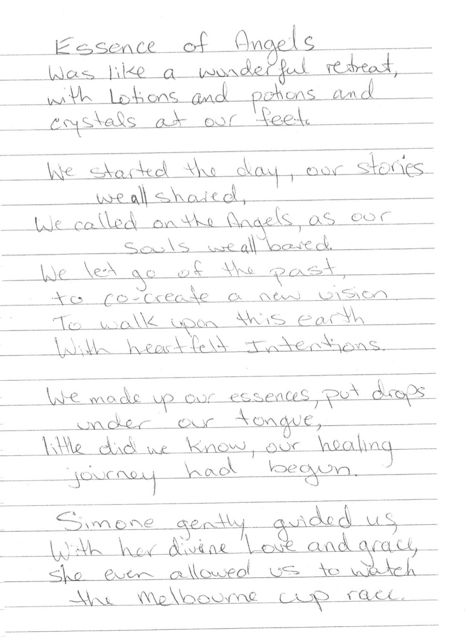 Essence of Angels
Was like a wonderful retreat,
with Lotions and potions and
crystals at our feet.
We started the day, our stories
we all shared,
We called on the Angels, as our
souls we all bared.
We let go of the past,
to co-create a new vision
To walk upon this earth
With heartfelt Intentions.
We made up our essences, put drops
under our tongue,
little did we know, our healing
journey had begun.
Simone gently guided us,
With her divine Love and grace,
she even allowed us to watch
the Melbourne cup race.